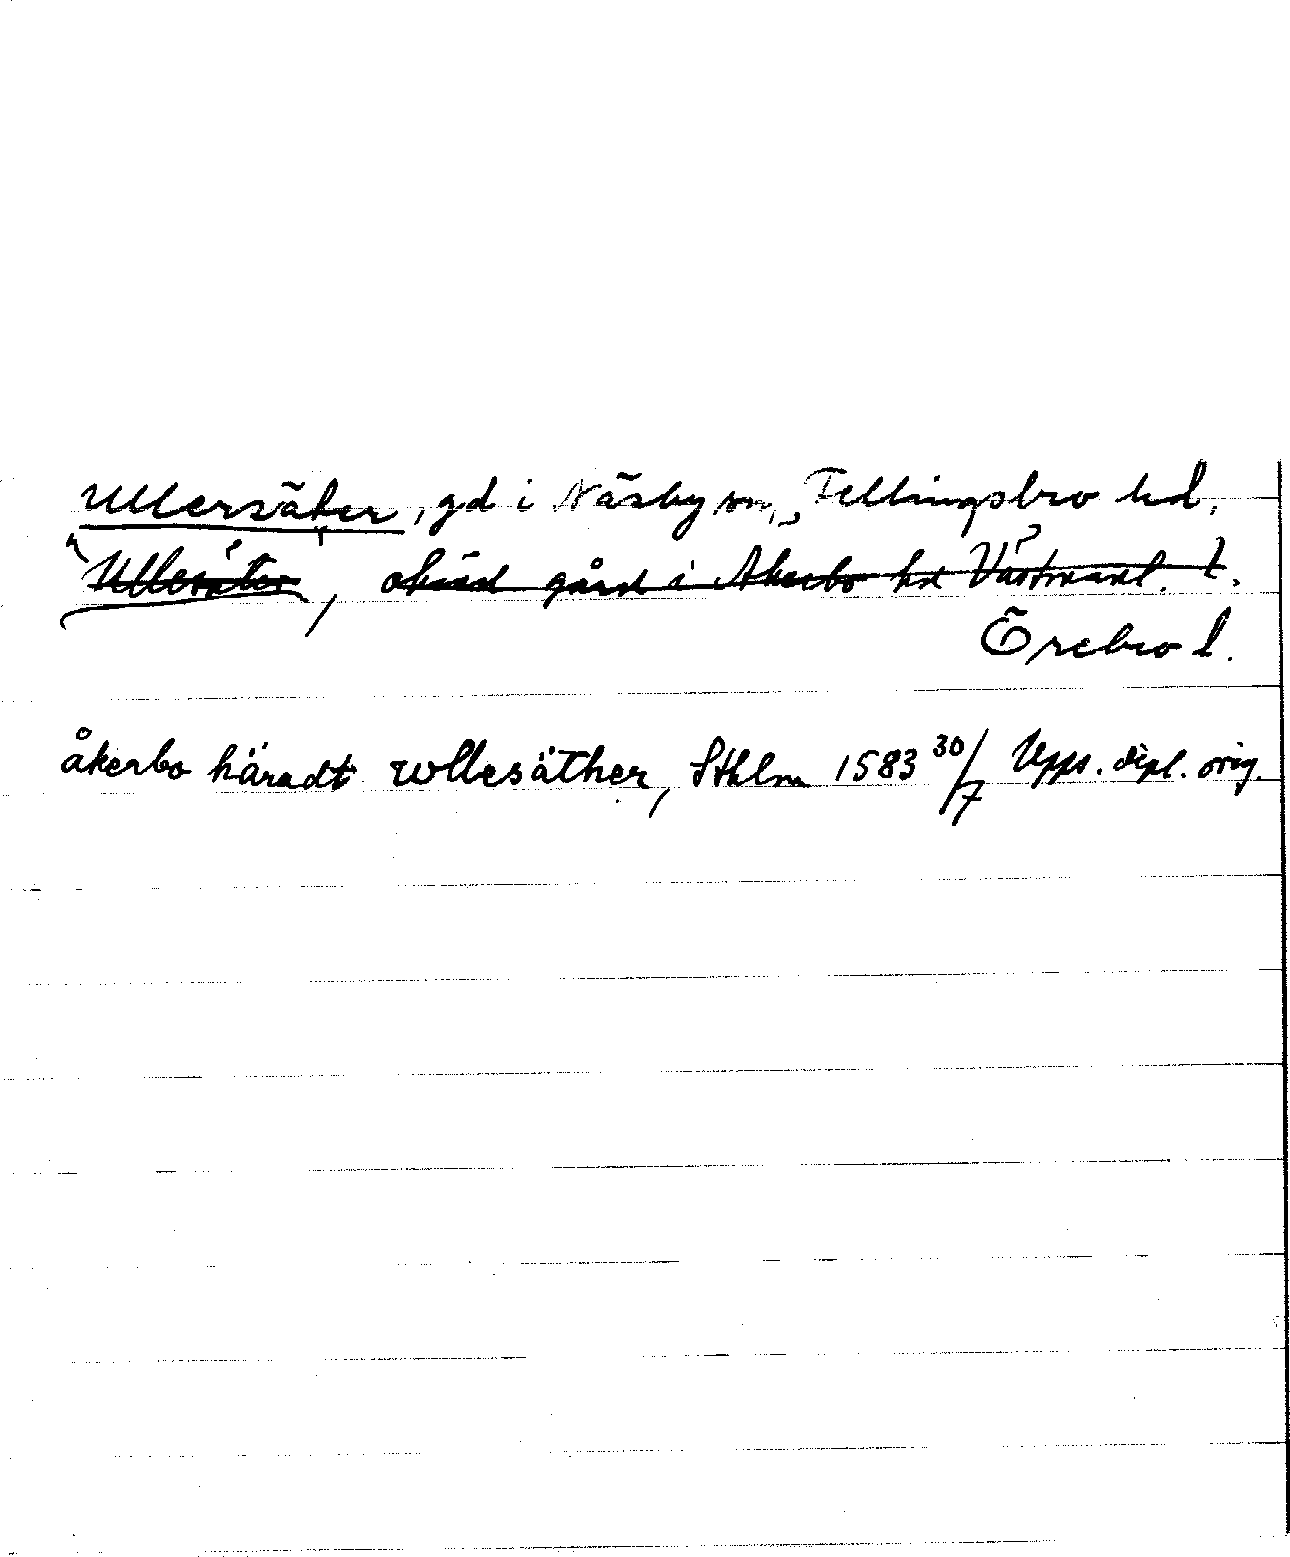 Ullersäter, gd i Näsby sn, Fellingsbro hd,
Ullesäter, okänd gård i Åkerbo hd Västmanl. l.
Örebro l.
åkerbo häradt wllesäther, Sthlm 1583 30/7 Upps. dipl. orig.